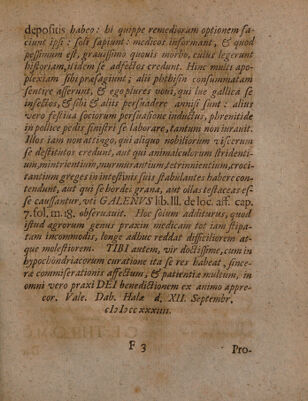 depositis habeo: hi quippe remediorum optionem fa-
ciunt ipsi: soli sapiunt: medicos informant, & quod
pessimum est, gravissimo quovis morbo, cuius legerunt
historiam, itidem se adfectos credunt. Hinc multi apo-
plexiam sibi præsagiunt; alii phthisin consummatam
sentire asserunt, & ego plures novi, qui lue gallica se
infectos, & sibi & aliis persuadere annisi sunt: alius
vero festiva sociorum persuasione inductus, phrenitide
in pollice pedis sinistri se laborare, tantum non iuravit.
Illos iam non attingo, qui aliquo nobiliorum viscerum
se destitutos credunt, aut qui animalculorum stridenti-
um, mintrientium, murmirantium, tetrinnientium, croci-
tantium greges in intestinis suis stabulantes habere con-
tendunt, aut qui se hordei grana, aut ollas testaceas es-
se caussantur, vti GALENVS lib. III. de loc. aff. cap.
7. fol. m. 18. observavit. Hoc solum additurus, quod
istud ægrorum genus praxin medicam tot tam stipa-
tam incommodis, longe adhuc reddat difficiliorem at-
que molestiorem. TIBI autem, vir doctissime, cum in
hypochondriacorum curatione ita se res habeat, since-
ræ commiserationis affectum, & patientiæ multum, in
omni vero praxi DEI benedictionem ex animo appre-
cor. Vale. Dab. Halæ d. XII. Septembr.
cIↃIↃccxxxiiii.
F 3
Pro-